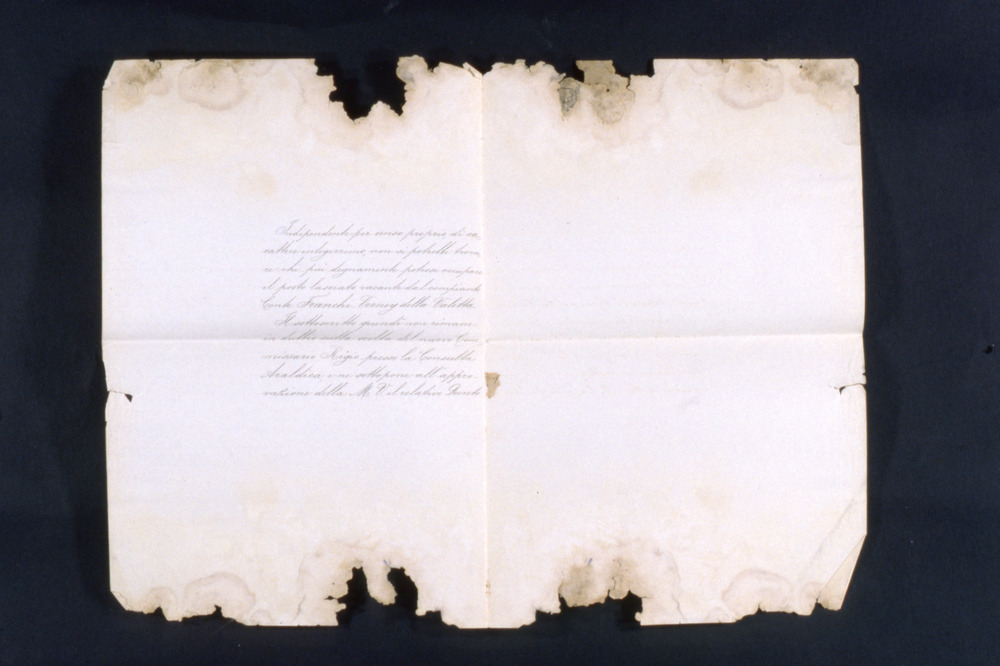 Indipendente per censo proprio, di ca-
rattere integerrimo, non si potrebbe trova-
re chi più degnamente potesse occupare
il posto lasciato vacante dal compianto
Conte Franchi Verney della Valetta.
Il sottoscritto quindi non rimane
in dubbio nella scelta del nuovo Com-
missario Regio presso la Consulta
Araldica e ne sottopone all'appro-
vazione della M. V. il relativo Decreto